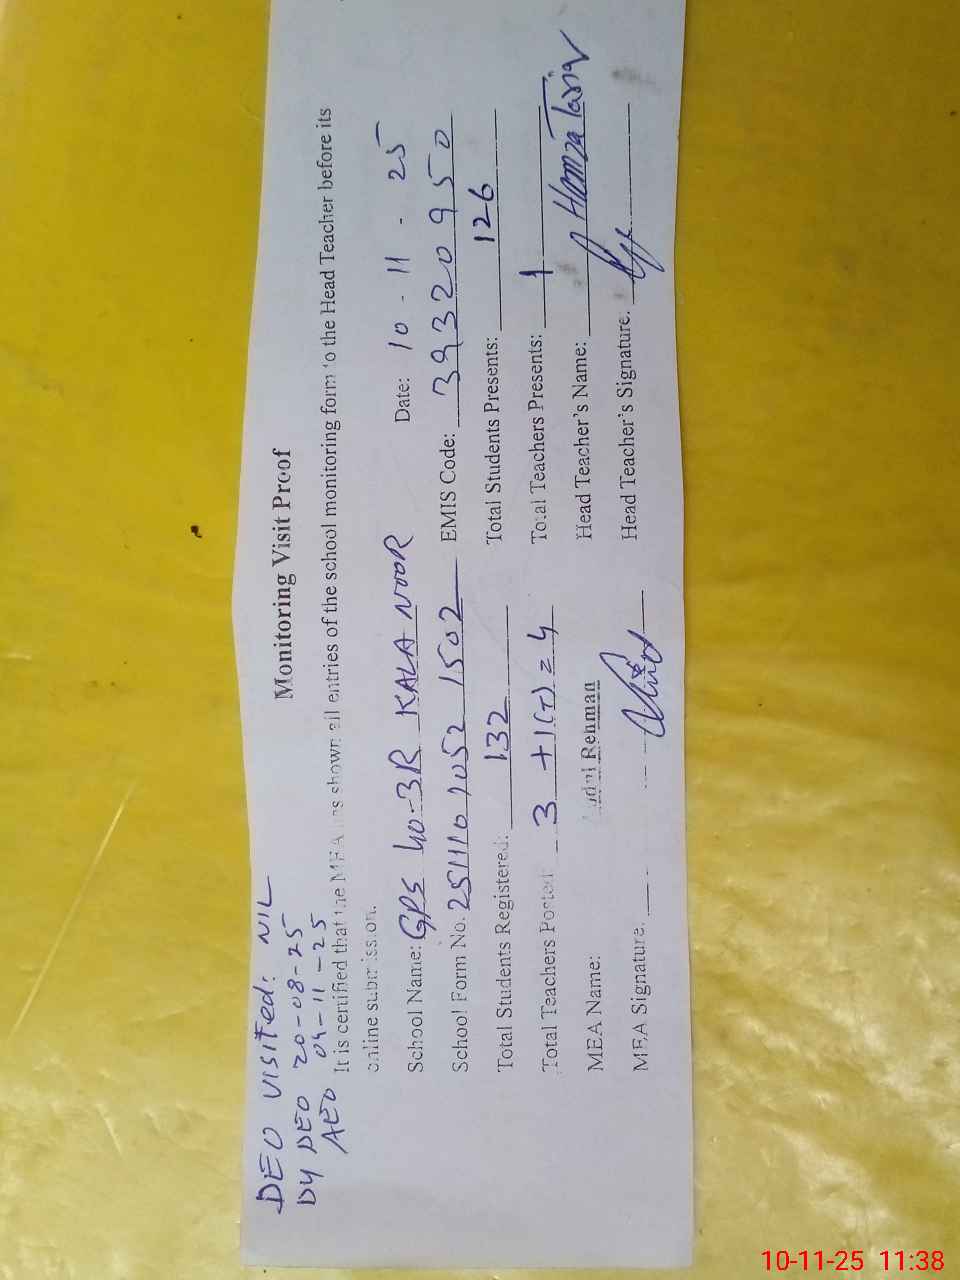 DEO VISITED: NIL
DY DEO 20-08-25
AEO 04-11-25
Monitoring Visit Proof
It is certified that the MEA has shown all entries of the school monitoring form to the Head Teacher before its
online submission.
School Name: GPS 40-3R KALA NOOR Date: 10-11-25
School Form No. 251110 1052 1502 EMIS Code: 39320950
Total Students Registered: 132 Total Students Presents: 126
Total Teachers Posted: 3 +1(T) = 4 Total Teachers Presents: 1
MEA Name: Rehman Head Teacher's Name: Hamza Tariq
MEA Signature: Head Teacher's Signature:
10-11-25 11:38